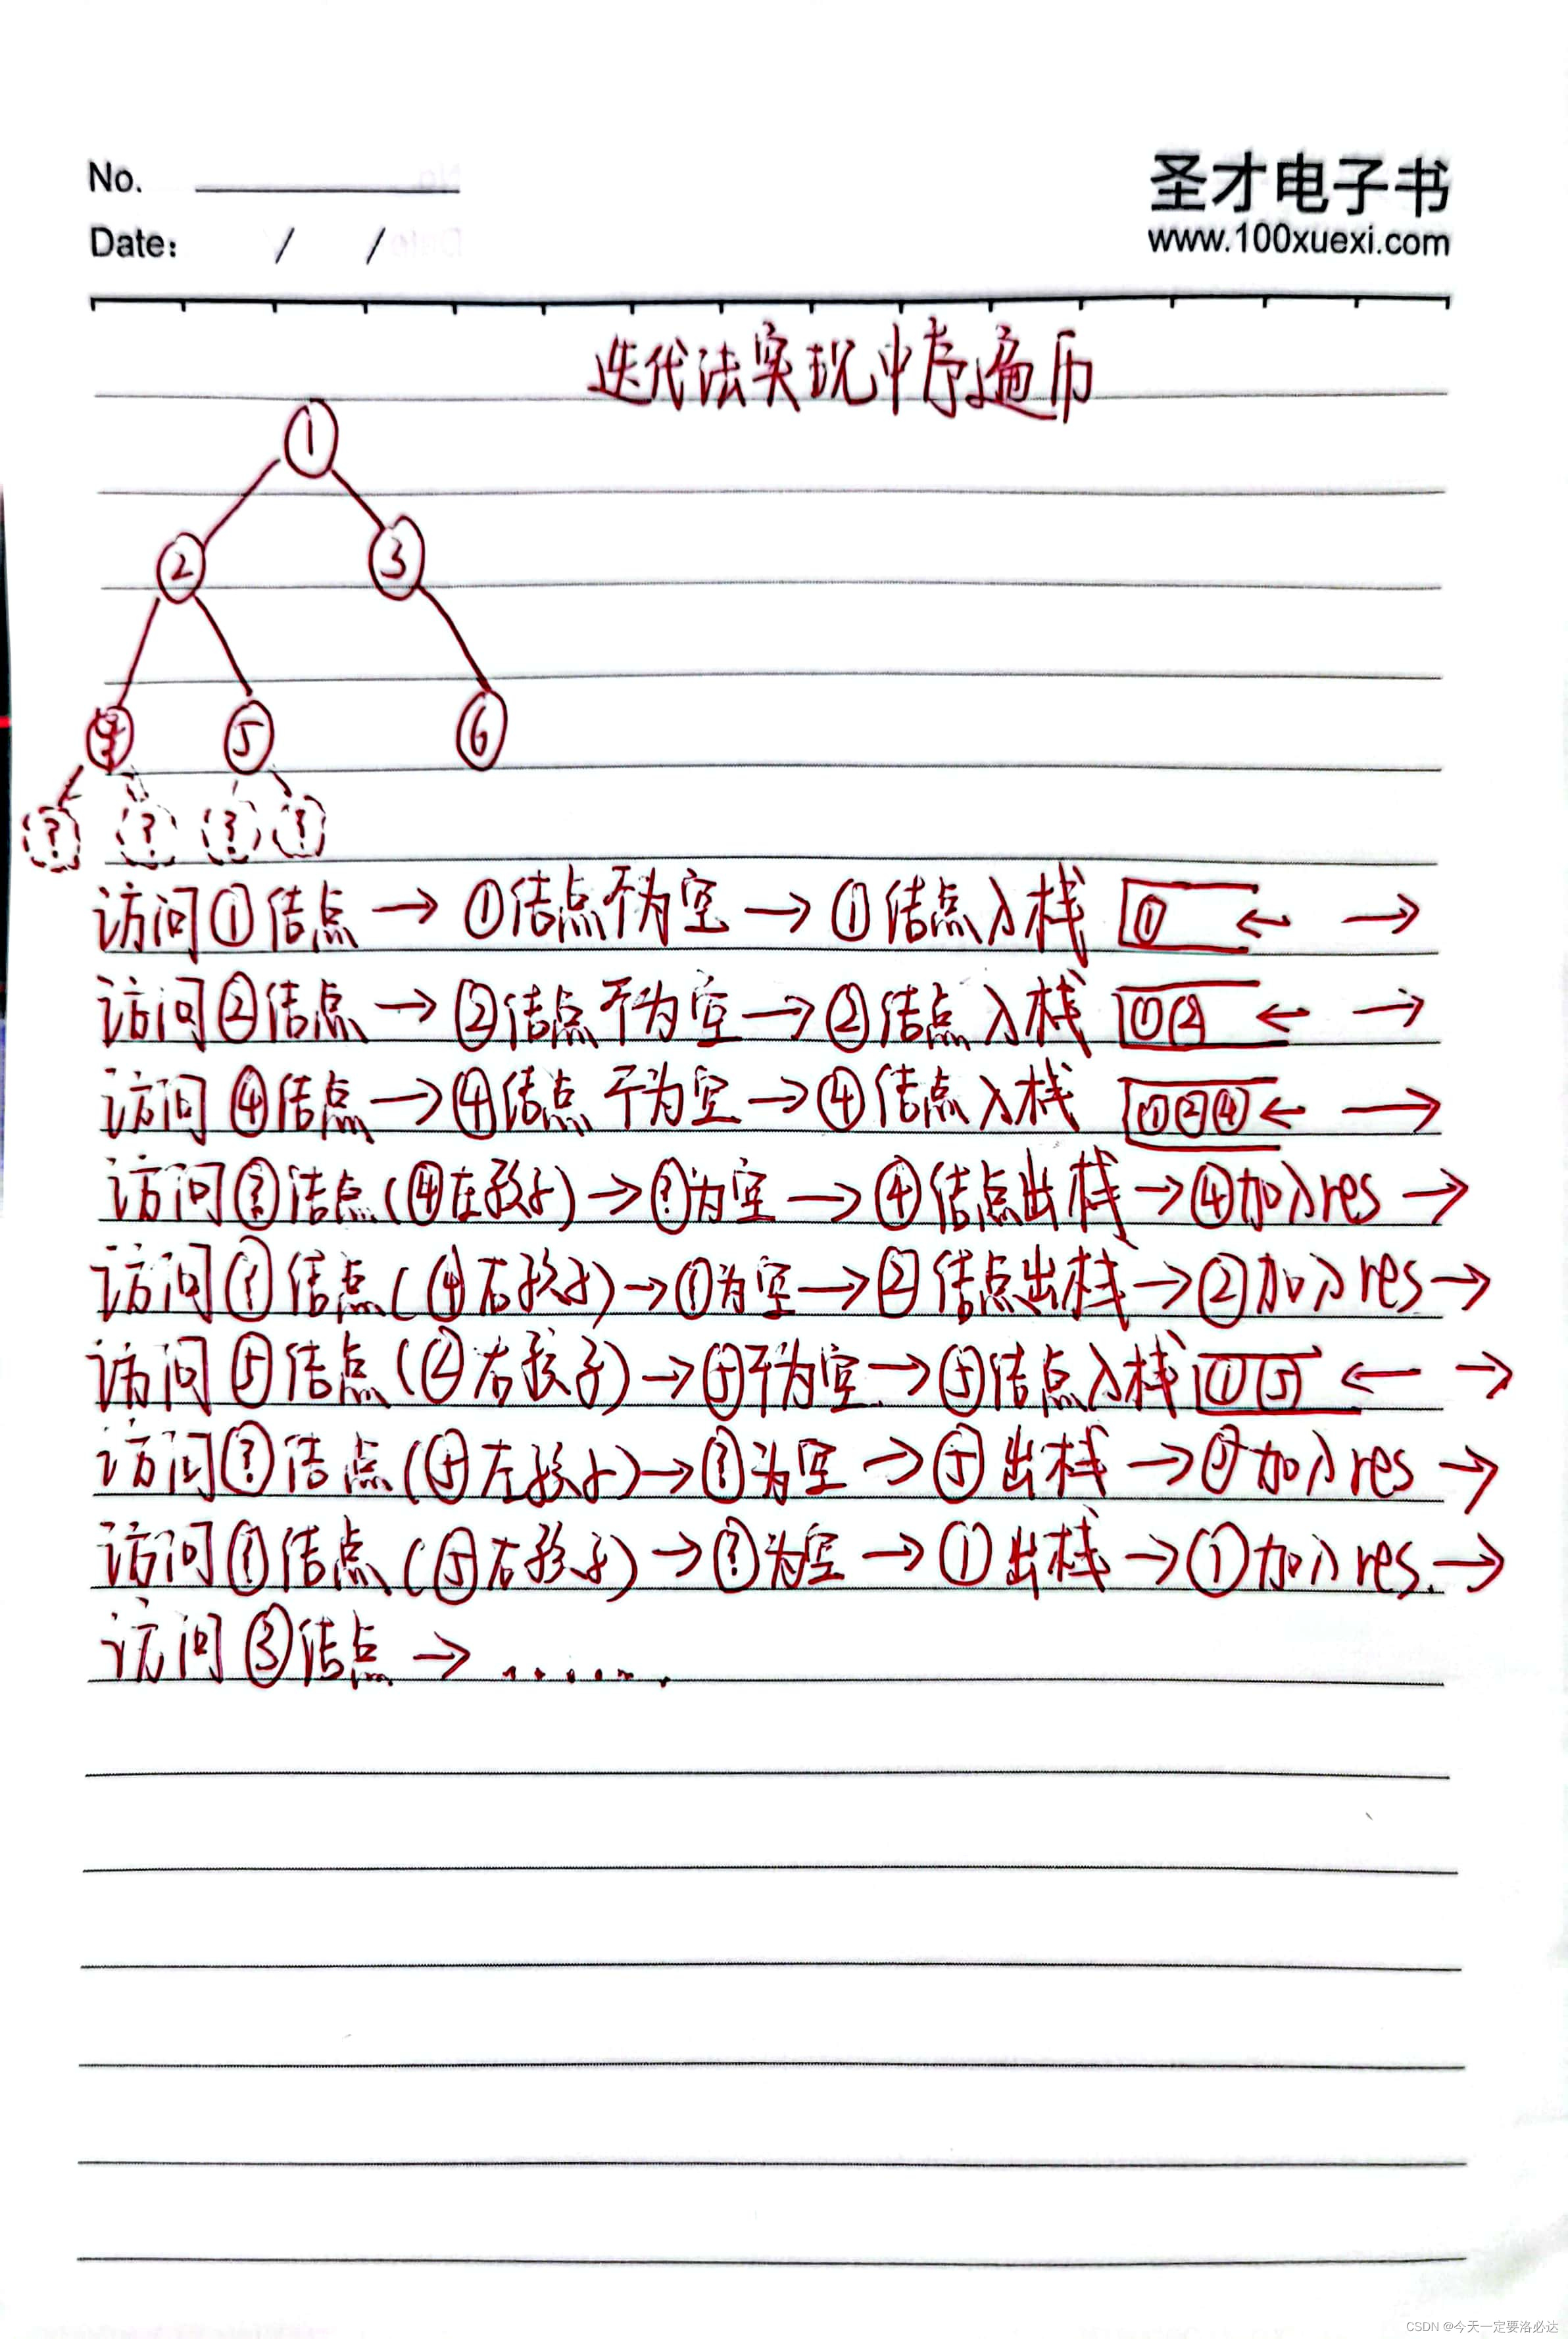 No.
圣才电子书
Date: / /
www.100xuexi.com
迭代法实现中序遍历
①
② ③
④ ⑤ ⑥
? ? ? ?
访问①结点 → ①结点不为空 → ①结点入栈 ① ← →
访问②结点 → ②结点不为空 → ②结点入栈 ①② ← →
访问④结点 → ④结点不为空 → ④结点入栈 ①②④ ← →
访问?结点(④左孩子) → ?为空 → ④结点出栈 → ④加入res →
访问?结点(④右孩子) → ?为空 → ②结点出栈 → ②加入res →
访问⑤结点(②右孩子) → ⑤不为空 → ⑤结点入栈 ①⑤ ← →
访问?结点(⑤左孩子) → ?为空 → ⑤出栈 → ⑤加入res →
访问?结点(⑤右孩子) → ?为空 → ①出栈 → ①加入res. →
访问③结点 → ......
CSDN @今天一定要洛必达